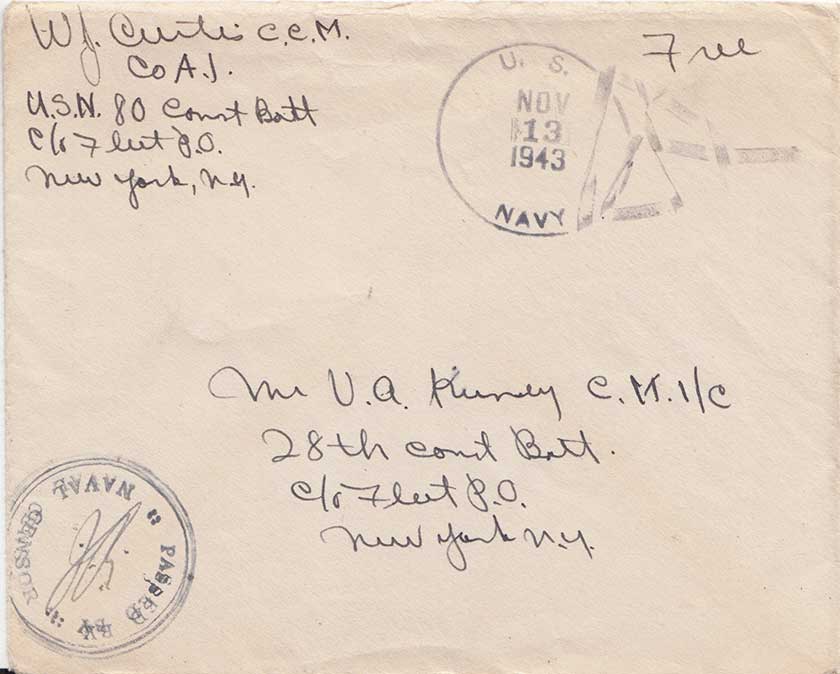 W.J. Curtis C.C.M.
Co A.1.
U.S.N. 80 Const Batt
c/o Fleet P.O.
New York, N.Y.
U. S.
NOV
13
1943
NAVY
Free
Mr V.A. C.M. 1/C
28th Const Batt.
c/o Fleet P.O.
New York N.Y.
PASSED BY
NAVAL CENSOR